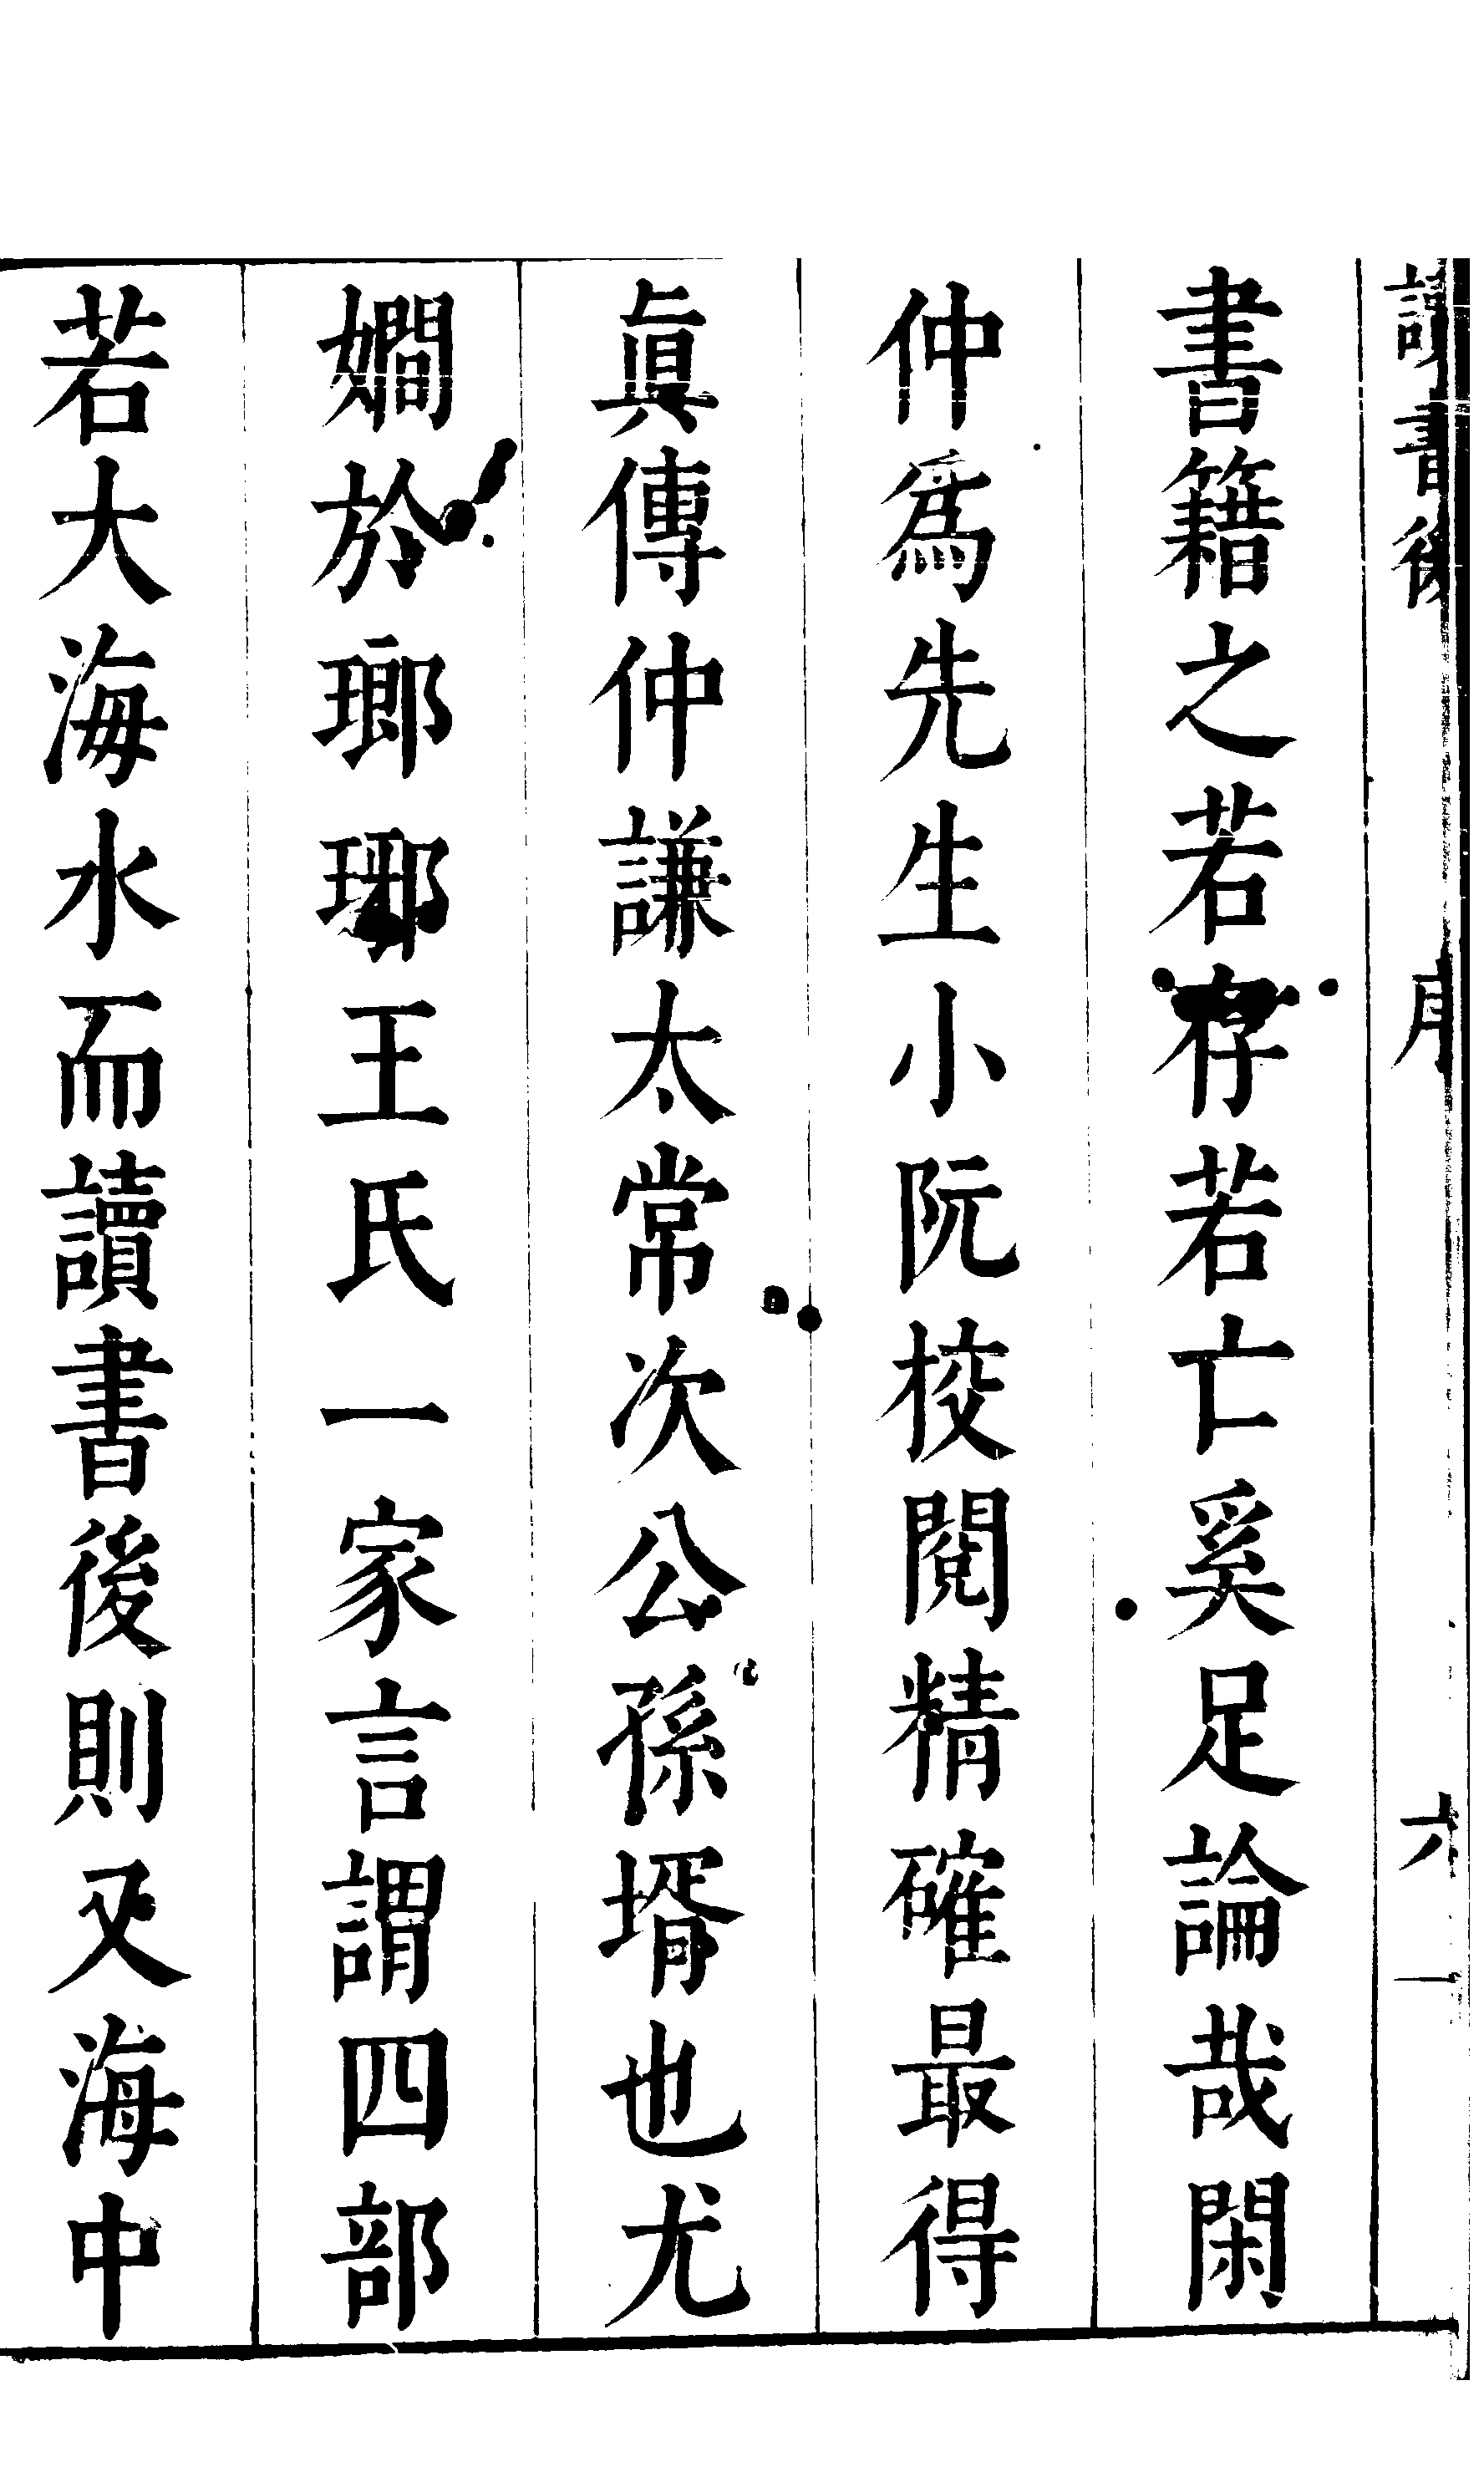 讀書後 序 六
書籍之若存若亡奚足論哉閑
仲爲先生小阮校閱精確最得
眞傳仲謙太常次公孫壻也尤
嫺於瑯瑘王氏一家言謂四部
若大海水而讀書後則又海中